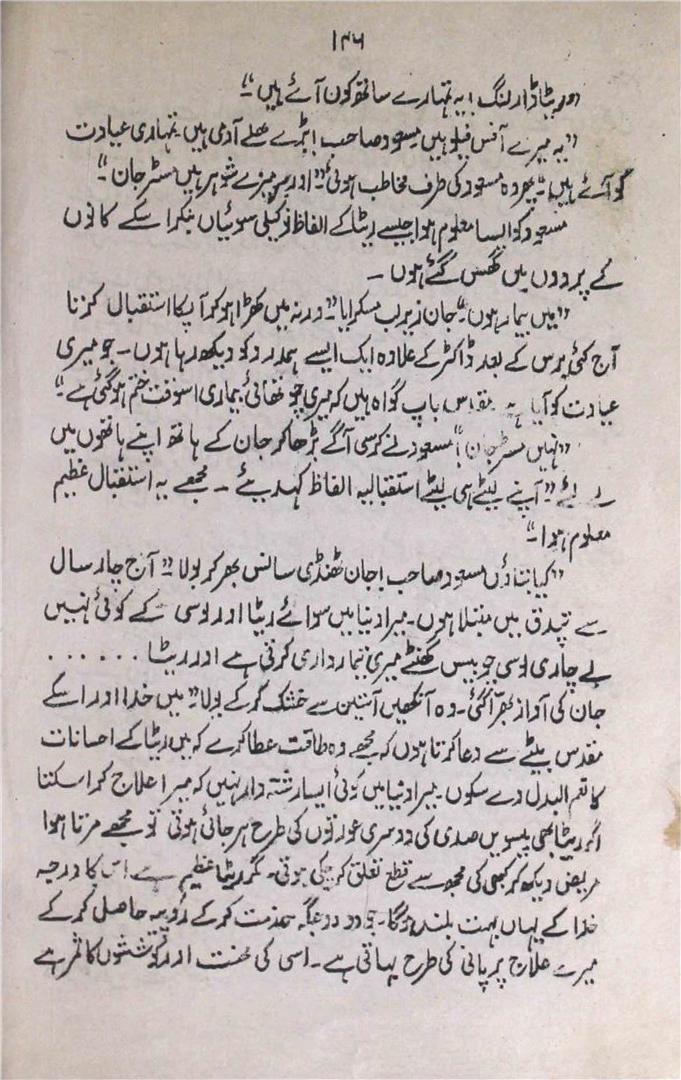 ۱۴۶
”ریٹا ڈارلنگ! یہ تمہارے ساتھ کون آئے ہیں“۔
”یہ میرے آفس فیلو ہیں مسعود صاحب! بڑے بھلے آدمی ہیں تمہاری عیادت
کو آئے ہیں“۔ پھر وہ مسعود کی طرف مخاطب ہوئی ”اور یہ میرے شوہر ہیں مسٹر جان“۔
مسعود کو ایسا معلوم ہوا جیسے ریٹا کے الفاظ نوکیلی سوئیاں بنکر اسکے کانوں
کے پردوں میں گھس گئے ہوں ۔
”میں بیمار ہوں“۔ جان زیر لب مسکرایا ”ورنہ میں کھڑا ہو کر آپکا استقبال کرتا
آج کئی برس کے بعد ڈاکٹر کے علاوہ ایک ایسے ہمدرد کو دیکھ رہا ہوں ۔ جو میری
عیادت کو آیا ہے مقدس باپ گواہ ہیں کہ میری چوتھائی بیماری اسوقت ختم ہو گئی ہے“۔
”نہیں مسٹر جان“! مسعود نے کرسی آگے بڑھا کر جان کے ہاتھ اپنے ہاتھوں میں
لے لئے ”آپنے لیٹے ہی لیٹے استقبالیہ الفاظ کہدیئے ۔ مجھے یہ استقبال عظیم
معلوم ہوا“۔
”کیا بتاؤں مسعود صاحب! جان ٹھنڈی سانس بھر کر بولا ”آج چار سال
سے تپدق میں مبتلا ہوں ۔ میرا دنیا میں سوائے ریٹا اور لوسی کے کوئی نہیں
بے چاری لوسی چوبیس گھنٹے میری تیمارداری کرتی ہے اور ریٹا . . . . . .
جان کی آواز بھرّا گئی ۔ وہ آنکھیں آستین سے خشک کر کے بولا ”میں خدا اور اسکے
مقدس بیٹے سے دعا کرتا ہوں کہ مجھے وہ طاقت عطا کرے کہ میں ریٹا کے احسانات
کا نعم البدل دے سکوں ۔ میرا دنیا میں کوئی ایسا رشتہ دار نہیں کہ میرا علاج کرا سکتا
اگر ریٹا بھی بیسویں صدی کی دوسری عورتوں کی طرح ہرجائی ہوتی تو مجھے مرتا ہوا
مریض دیکھ کر کبھی کی مجھ سے قطع تعلق کر چکی ہوتی ۔ مگر ریٹا عظیم ہے اس کا درجہ
خدا کے یہاں بہت بلند ہوگا ۔ جو دو دو جگہ خدمت کر کے روپیہ حاصل کر کے
میرے علاج پر پانی کی طرح بہاتی ہے ۔ اسی کی محنت اور کوششوں کا ثمر ہے